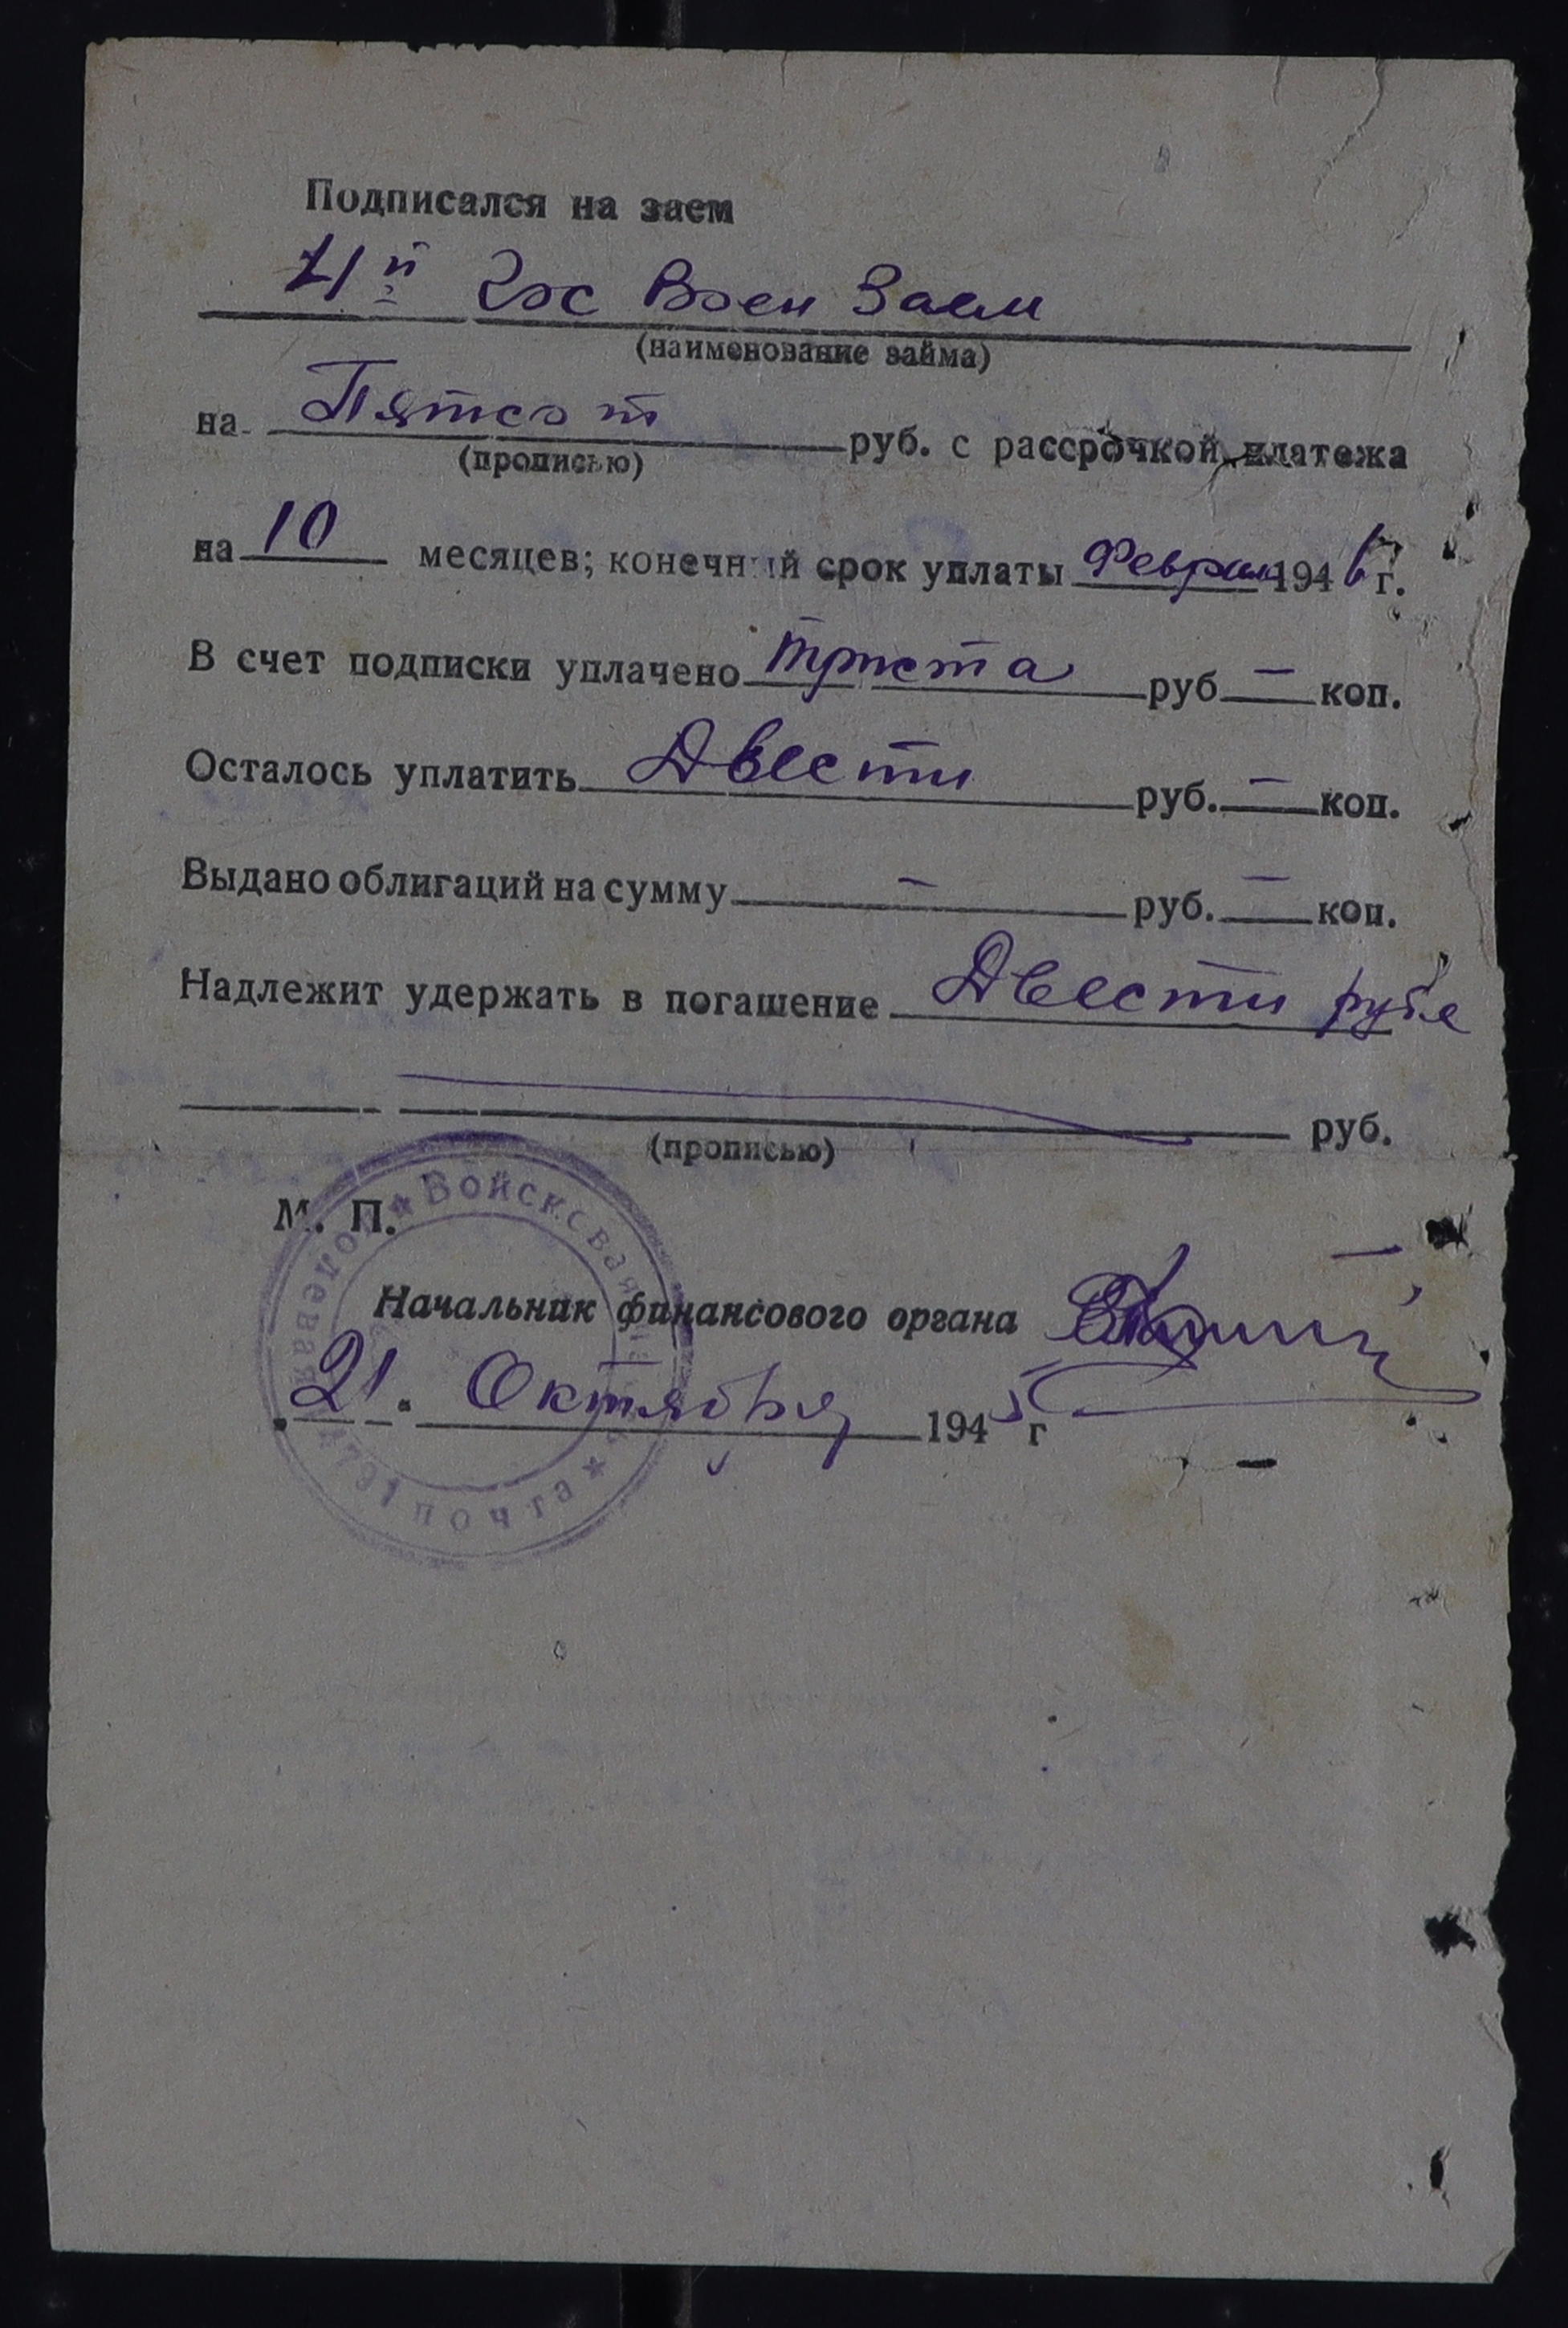 Подписался на заем
4й Гос Воен Заем
(наименование займа)
на Пятсот руб. с рассрочкой платежа
(прописью)
на 10 месяцев; конечный срок уплаты Феврал 1946 г.
В счет подписки уплачено триста руб — коп.
Осталось уплатить Двести руб. — коп.
Выдано облигаций на сумму — руб. — коп.
Надлежит удержать в погашение Двести рубле
руб.
(прописью)
М. П.
Войсковая
полевая
почта
Начальник финансового органа
21. Октября 1945 г